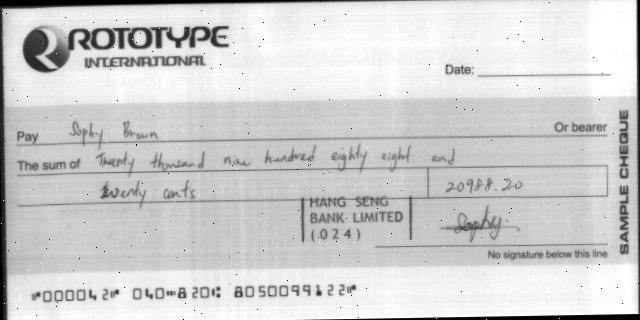 ROTOTYPE
INTERNATIONAL
Date:
Pay Sophy Brown Or bearer
The sum of Twenty thousand nine hundred eighty eight and
twenty cents
20988.20
HANG SENG
BANK LIMITED
(.024)
Sophy.
No signature below this line
SAMPLE CHEQUE
⑈000042⑈ 040⑉820⑆ 805009912 2⑈